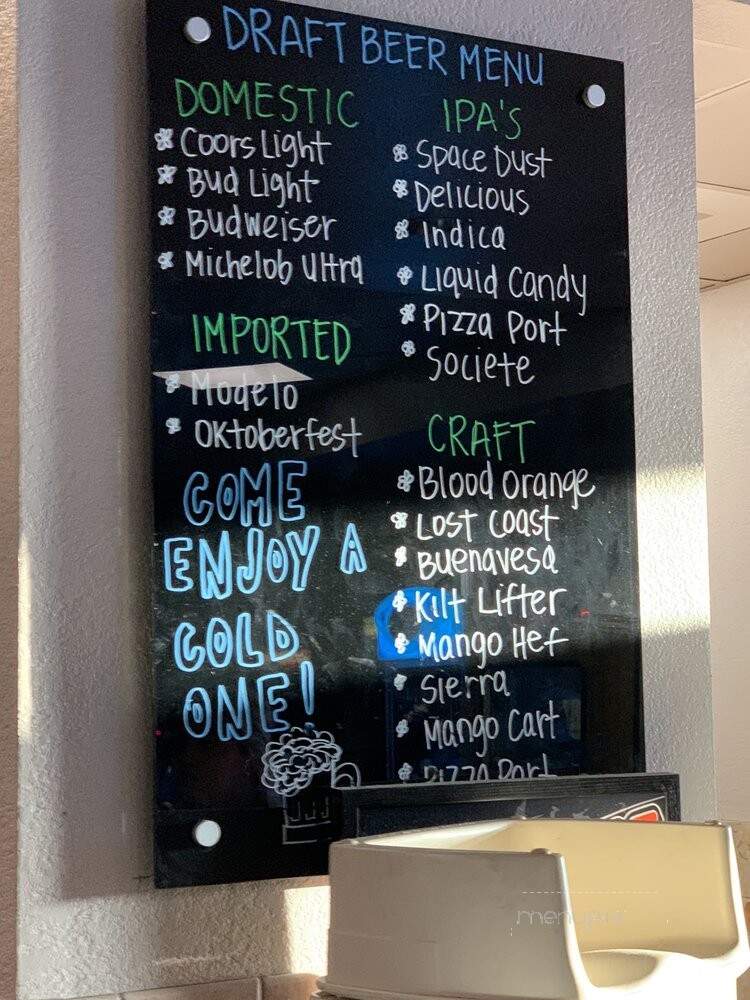 DRAFT BEER MENU
DOMESTIC
Coors Light
Bud Light
Budweiser
Michelob Ultra
IMPORTED
Modelo
Oktoberfest
COME
ENJOY A
COLD
ONE!
IPA'S
Space Dust
Delicious
Indica
Liquid Candy
Pizza Port
Societe
CRAFT
Blood Orange
Lost Coast
Buenavesa
Kilt Lifter
Mango Hef
Sierra
Mango Cart
Pizza Port